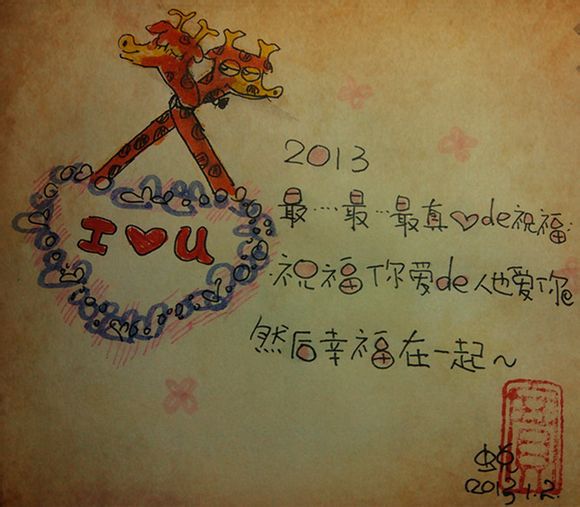 I ❤ u
2013
最…最…最真♡de祝福:
祝福你爱de人也爱你
然后幸福在一起~
2013.1.2.